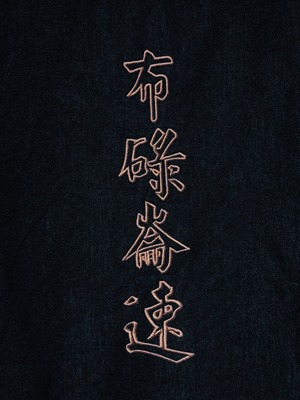 布碌崙速